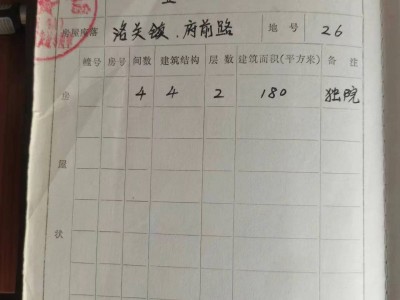 房屋座落 洛关镇、府前路 地号 26
幢号 房号 间数 建筑结构 层数 建筑面积(平方米) 备注
房 4 4 2 180 独院
屋
状